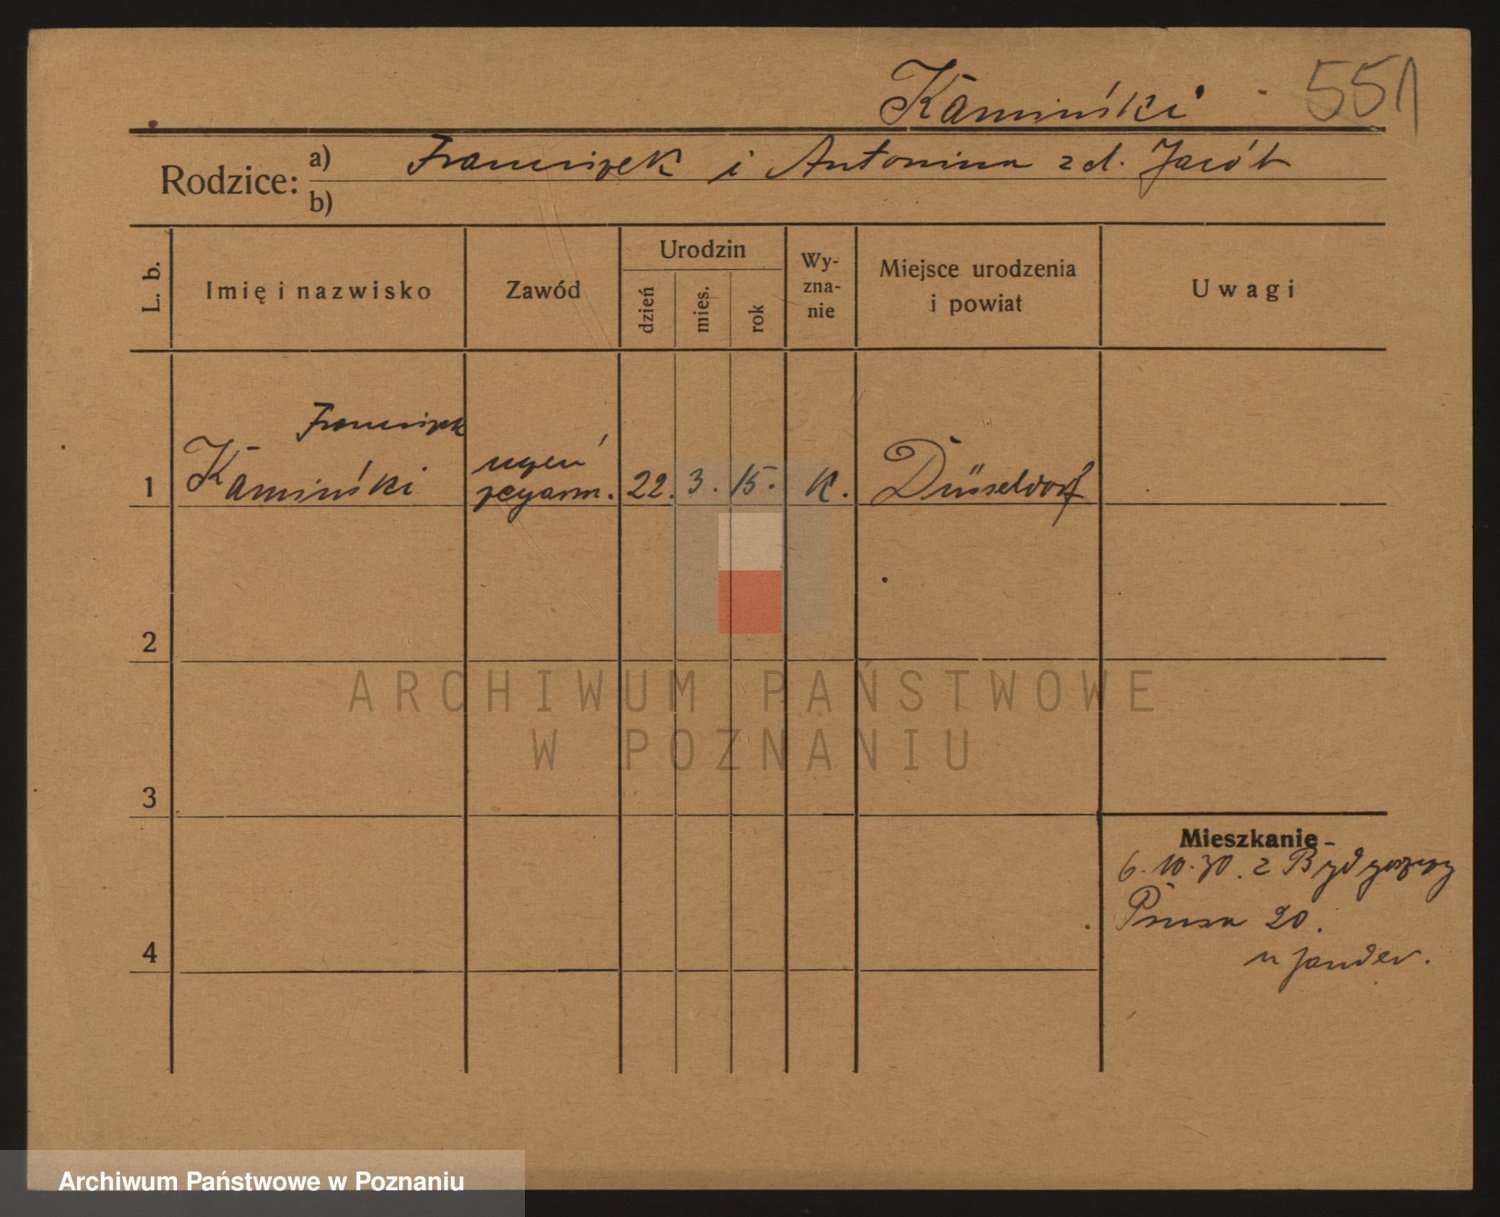 Kamiński 551
Rodzice: a) Franciszek i Antonina z d. Jacób
b)
L. b. Imię i nazwisko Zawód Urodzin dzień mies. rok Wy-zna-nie Miejsce urodzenia i powiat Uwagi
Franciszek
1 Kamiński uczeń zegarm. 22. 3. 15. K. Düsseldorf
2
ARCHIWUM PAŃSTWOWE
W POZNANIU
3
Mieszkanie
6.10.30. z Bydgoszczy
Prusa 20.
4
u
Archiwum Państwowe w Poznaniu